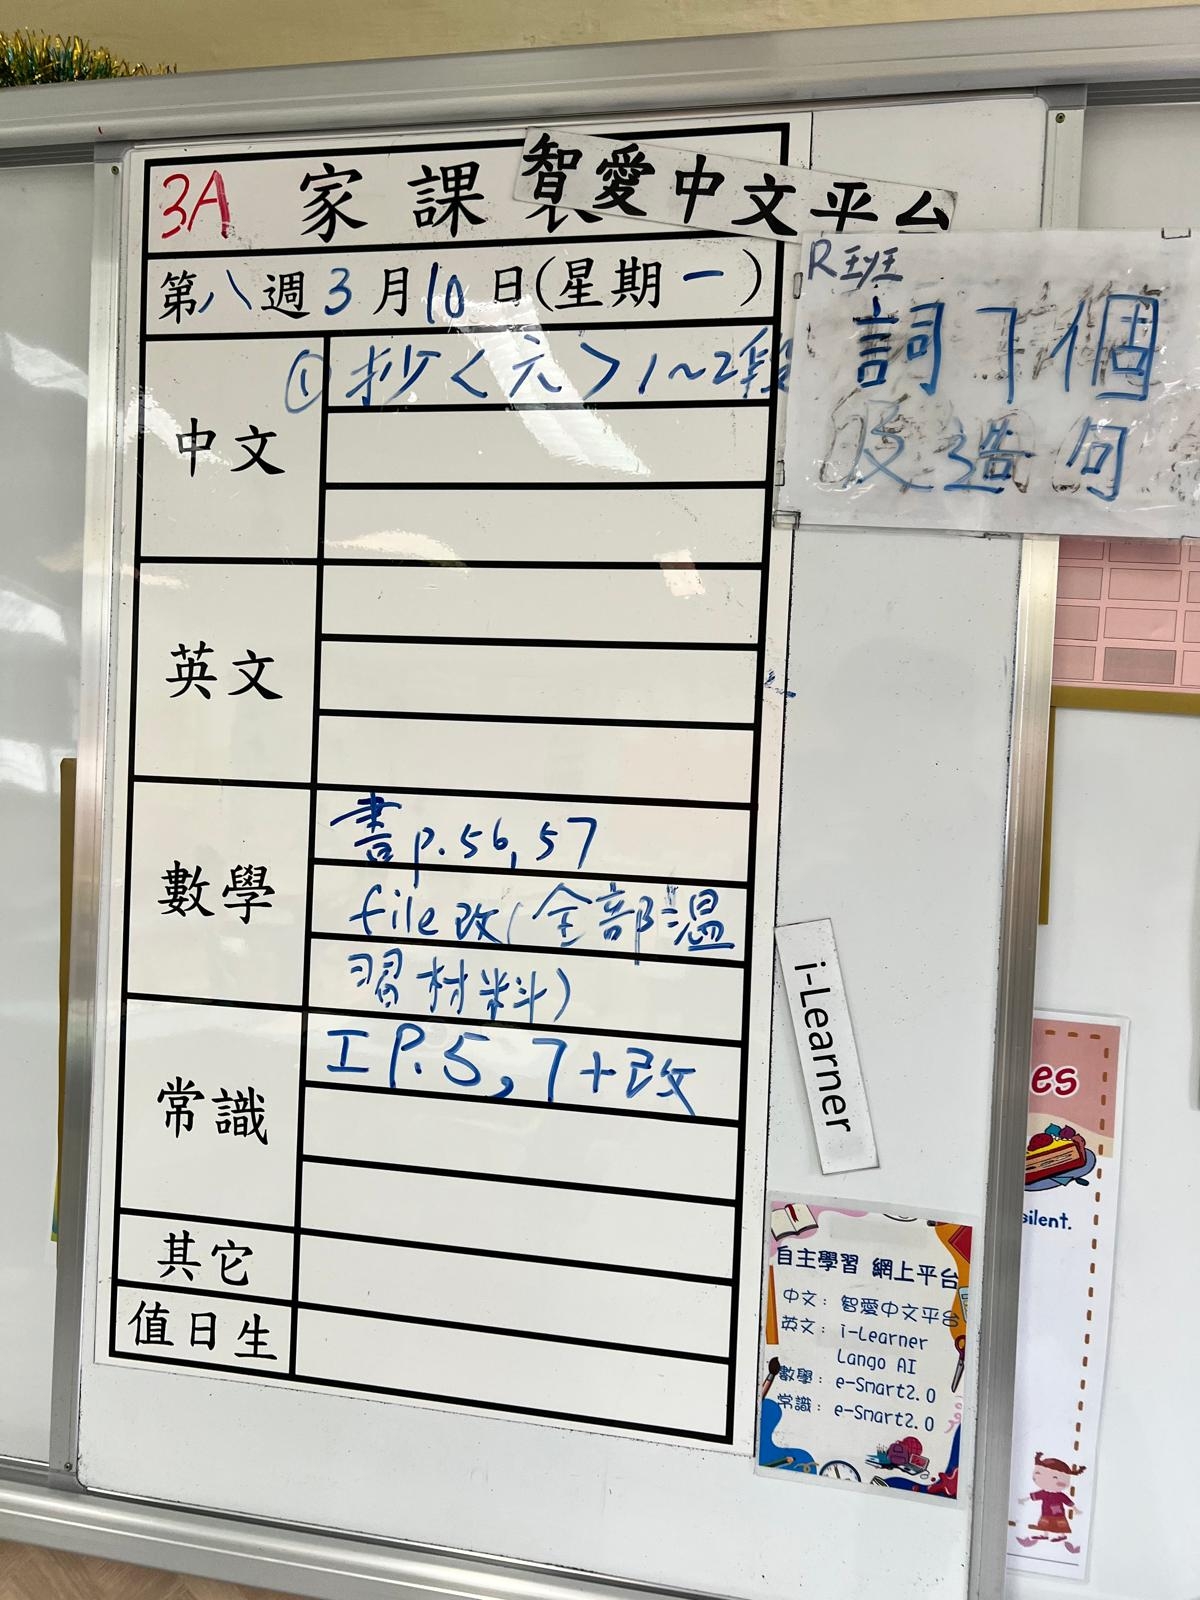 3A 家課
智愛中文平台
第八週3月10日(星期一)
中文
①抄<元>1~2段
R班
詞7個
及造句
英文
數學
書p.56,57
file改(全部溫
習材料)
常識
工P.5,7+改
其它
值日生
i-Learner
自主學習 網上平台
中文：智愛中文平台
英文：i-Learner
Lango AI
數學：e-Smart2.0
常識：e-Smart2.0
es
silent.